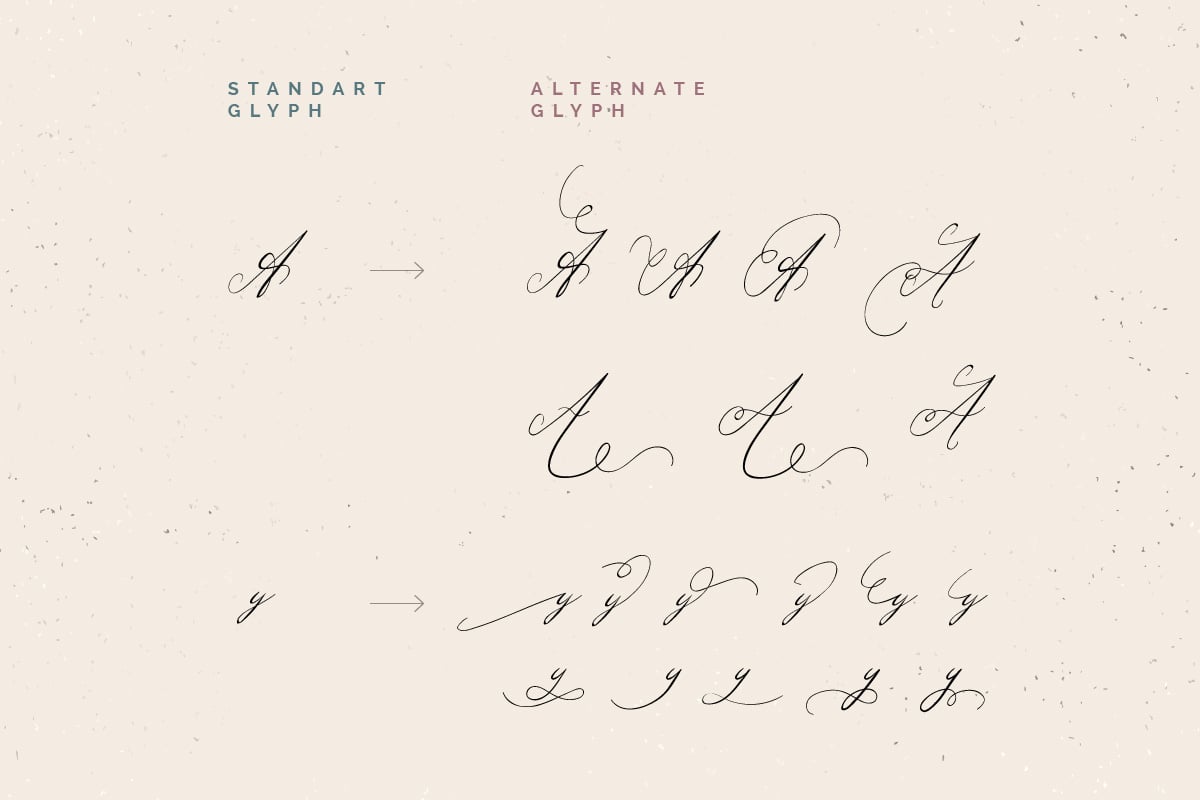 STANDART
GLYPH
ALTERNATE
GLYPH
A → A A A A
A A A
y → y y y y y y
y y y y y